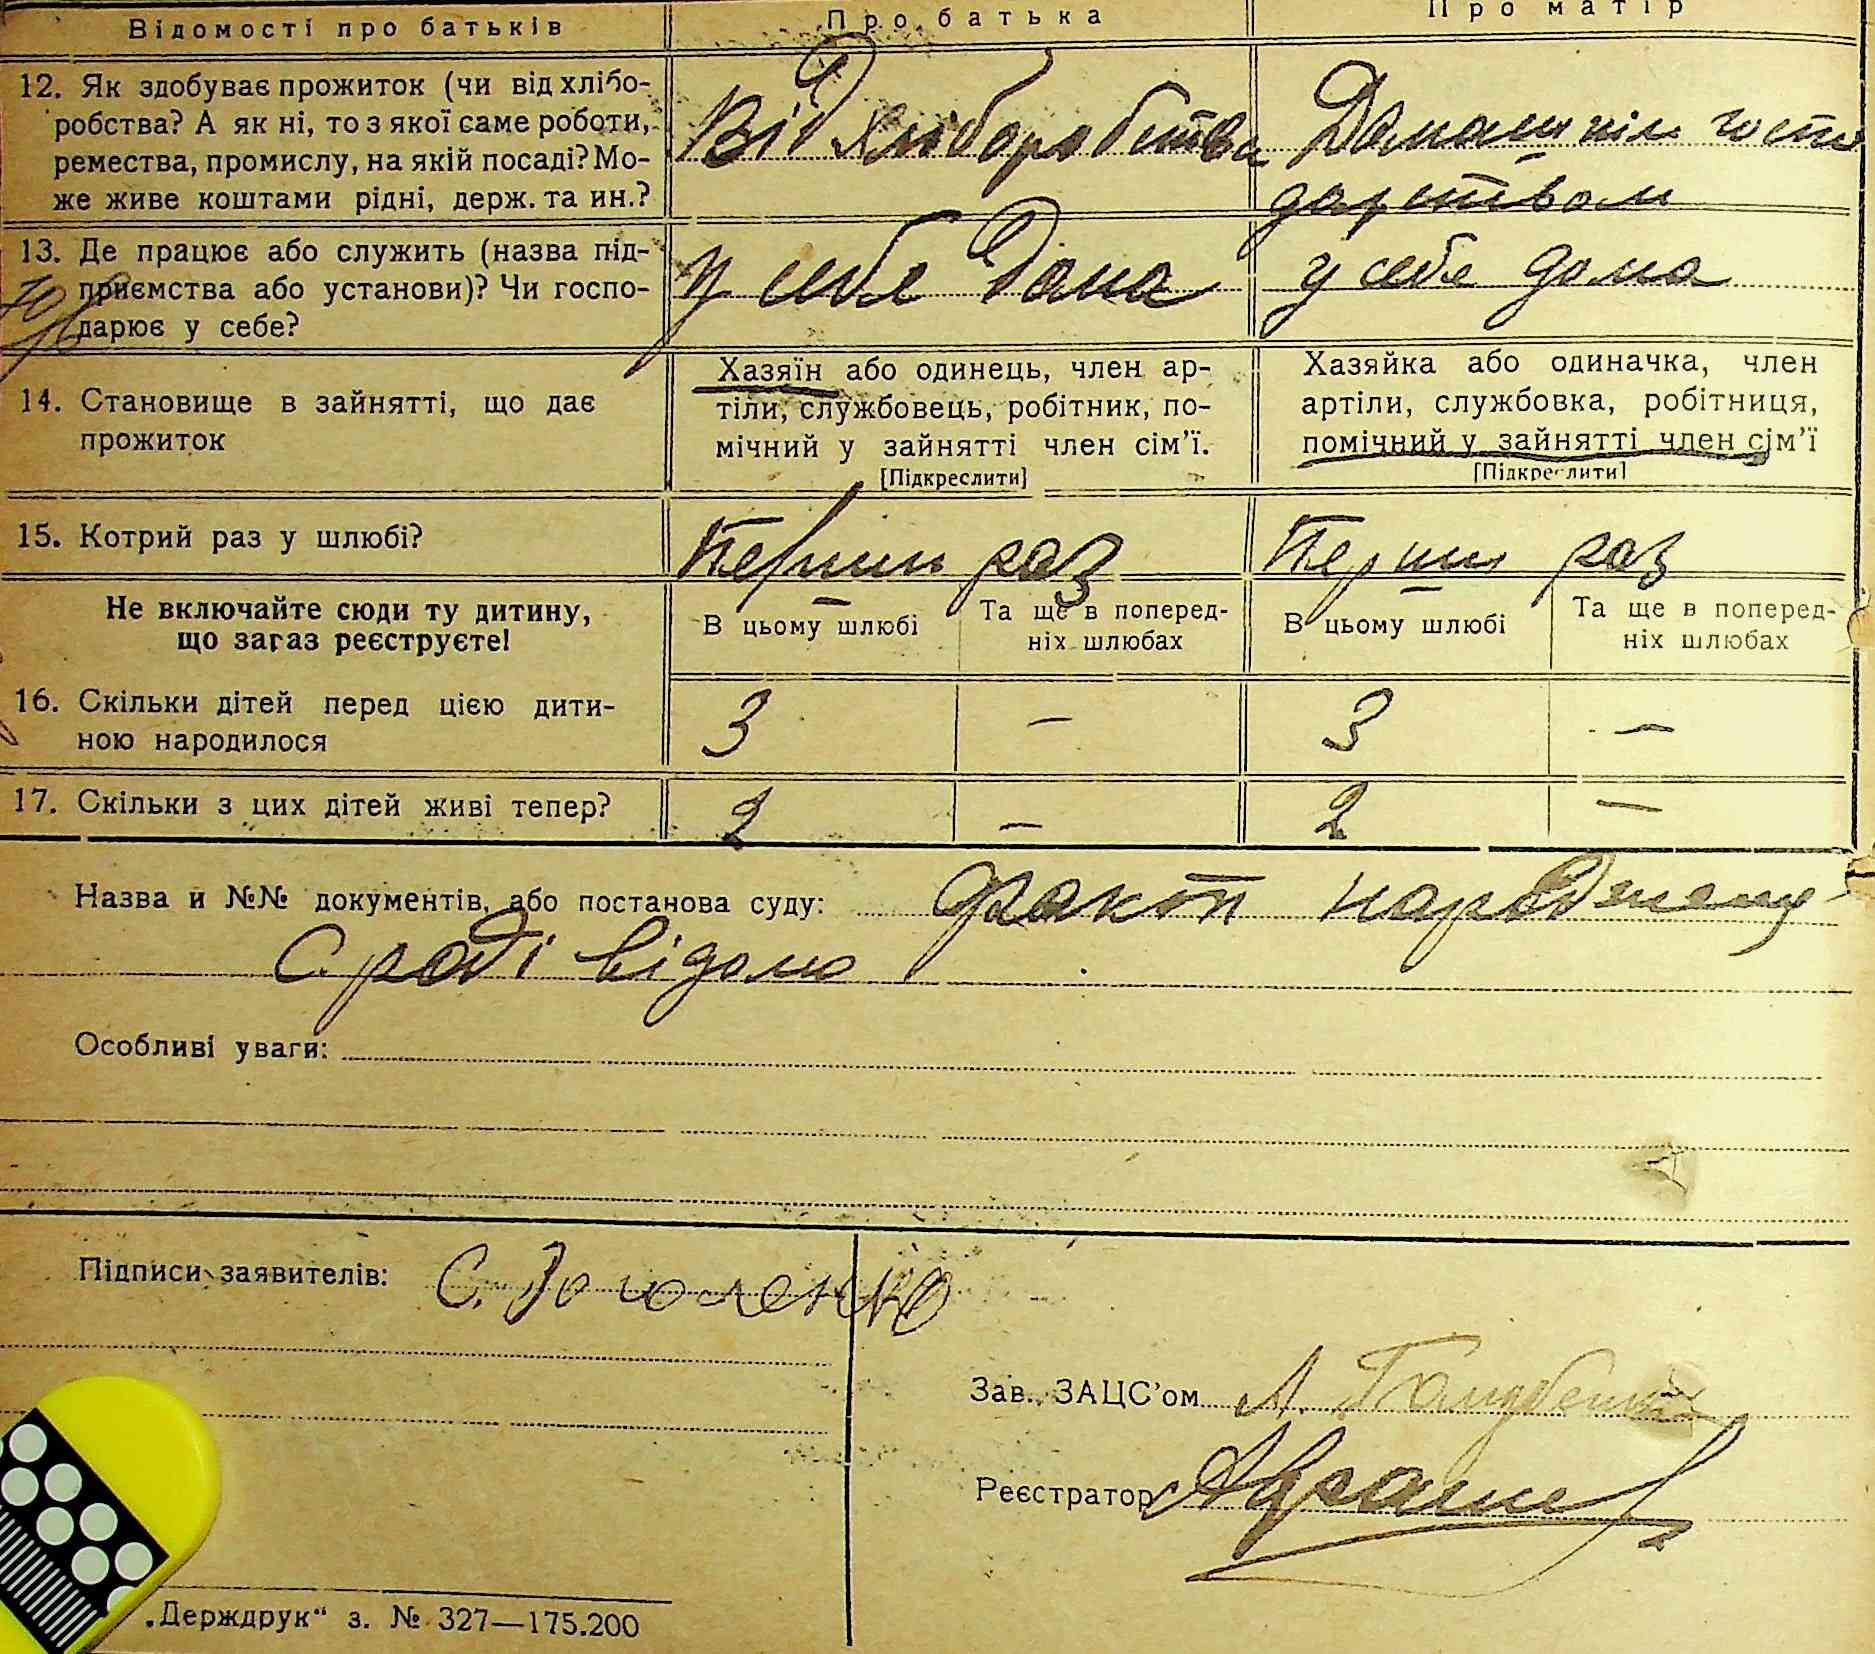 Відомості про батьків
Про батька
Про матір
12. Як здобуває прожиток (чи від хлібо-
робства? А як ні, то з якої саме роботи,
ремества, промислу, на якій посаді? Мо-
же живе коштами рідні, держ. та ин.?
Від хліборобства
Домашнім госпо
дарством
13. Де працює або служить (назва під-
приємства або установи)? Чи госпо-
дарює у себе?
у себе дома
у себе дома
14. Становище в зайнятті, що дає
прожиток
Хазяїн або одинець, член ар-
тіли, службовець, робітник, по-
мічний у зайнятті член сім’ї.
[Підкреслити]
Хазяйка або одиначка, член
артіли, службовка, робітниця,
помічний у зайнятті член сім’ї
[Підкреслити]
15. Котрий раз у шлюбі?
Перший раз
Перший раз
Не включайте сюди ту дитину,
що зараз реєструєте!
В цьому шлюбі
Та ще в поперед-
ніх шлюбах
В цьому шлюбі
Та ще в поперед-
ніх шлюбах
16. Скільки дітей перед цією дити-
ною народилося
3 — 3 —
17. Скільки з цих дітей живі тепер?
2 — 2 —
Назва й №№ документів, або постанова суду: факт народження
С. раді відомо
Особливі уваги:
Підписи заявителів:
Зав. ЗАЦС’ом
Реєстратор
„Держдрук“ з. № 327—175.200